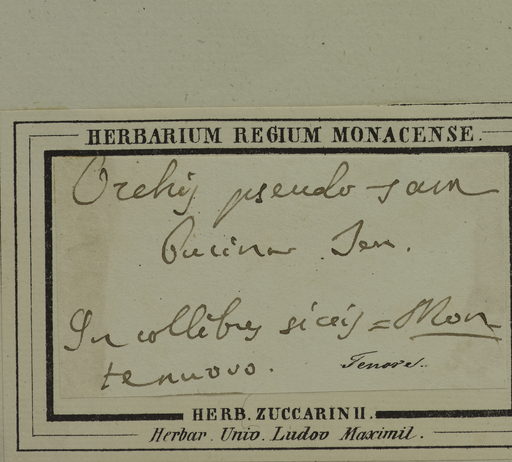 HERBARIUM REGIUM MONACENSE.
Orchis pseudo-sam
bucina Ten.
In collibus siccis = Mon
tenuovo. Tenore.
HERB. ZUCCARINII.
Herbar. Univ. Ludov Maximil.